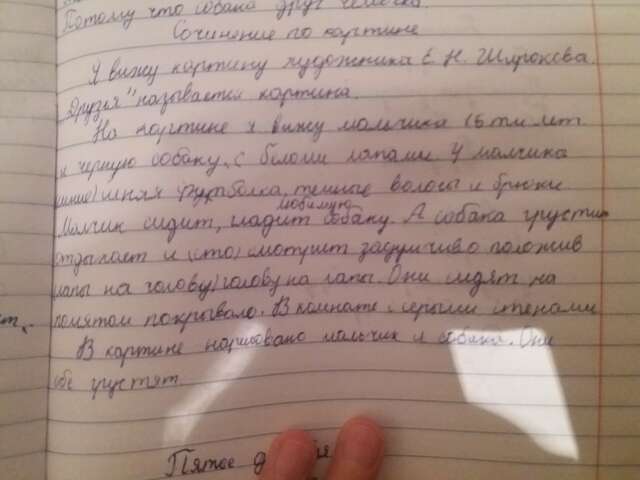 Потому что собака друг человека.
Сочинение по картине
Я вижу картину художника Е. Н. Широкова.
Друзья" называется картина.
На картине я вижу мальчика (6-ти лет
и черную собаку, с беломи лапами. У малчика
синяя футболка, темные волосы и брюки
любимую
Малчик сидит, гладит собаку. А собака грустит
отдыхает и (сто) смотрит задумчиво положив
лапы на голову) голову на лапы. Они сидят на
помятом покрывало. В комнате с серыми стенами
В картине нарисовано мальчик и собака. Они
обе грустят.
Пятое